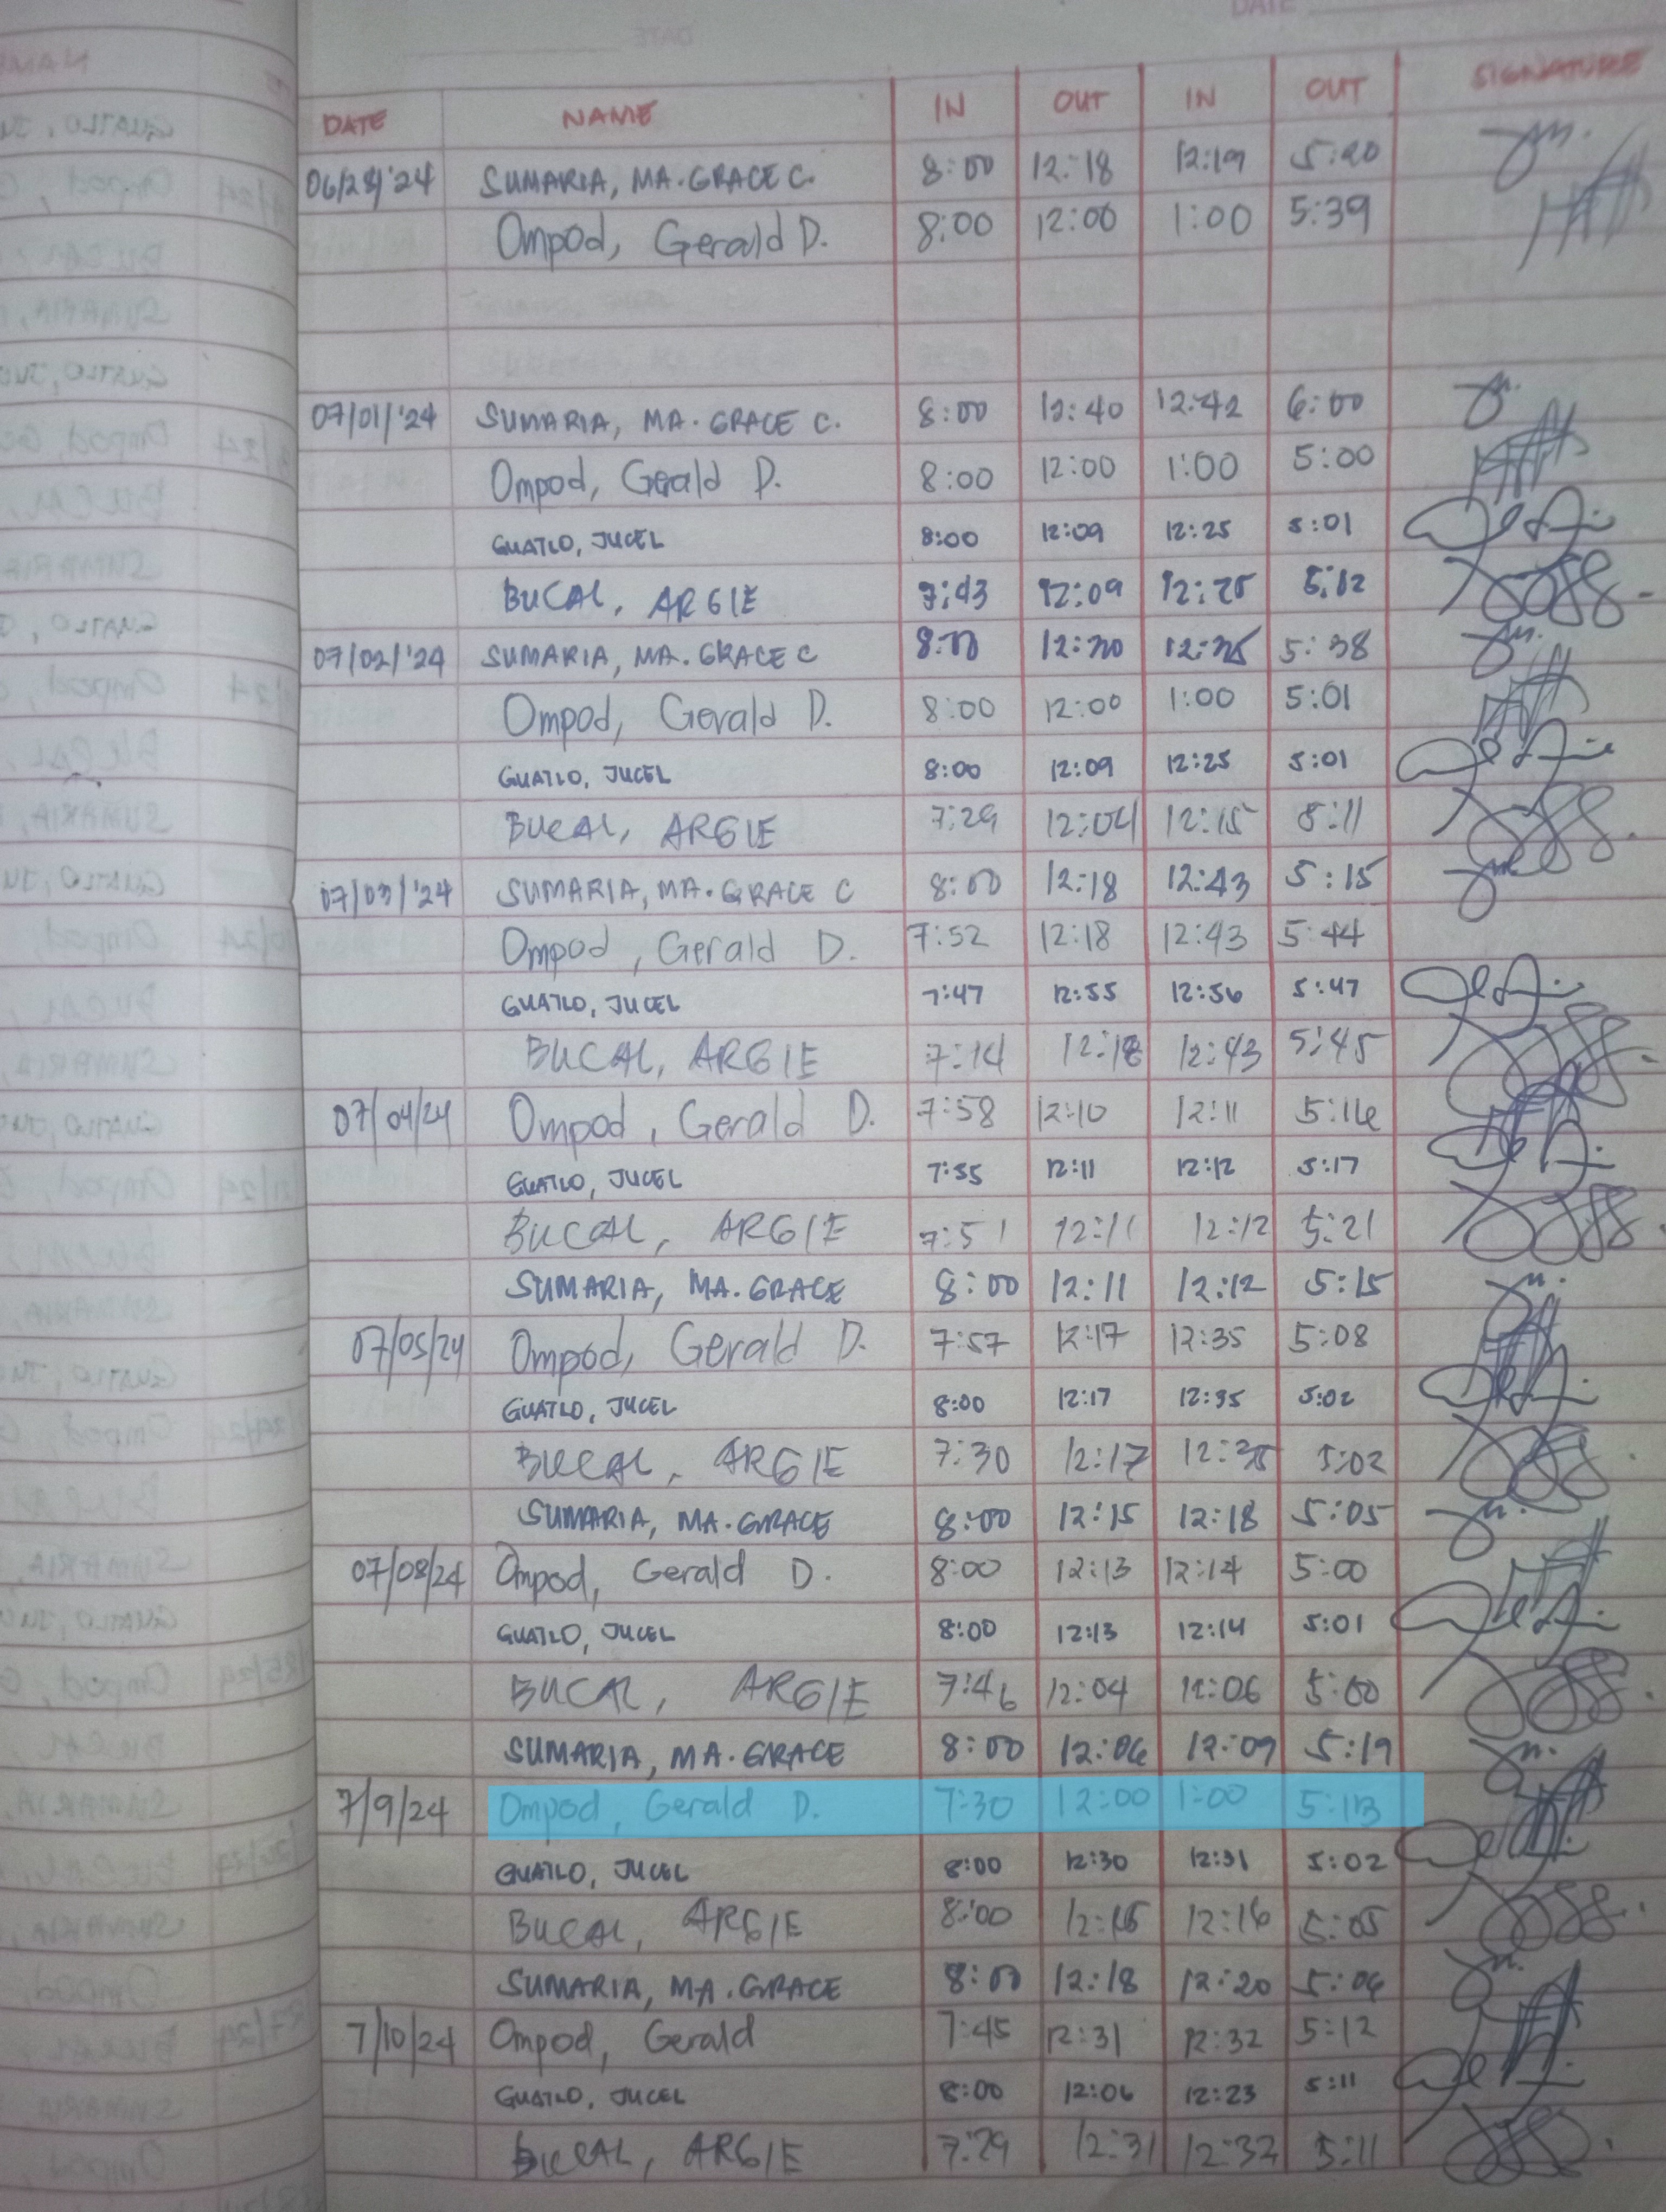 DATE
DATE NAME IN OUT IN OUT SIGNATURE
06/28/'24 SUMARIA, MA. GRACE C. 8:00 12:18 12:19 5:20
Ompod, Gerald D. 8:00 12:00 1:00 5:39
07/01/'24 SUMARIA, MA. GRACE C. 8:00 12:40 12:42 6:00
Ompod, Gerald D. 8:00 12:00 1:00 5:00
GUATLO, JUCEL 8:00 12:09 12:25 5:01
BUCAL, ARGIE 7:43 12:09 12:25 5:12
07/02/'24 SUMARIA, MA. GRACE C 8:00 5:38
Ompod, Gerald D. 8:00 12:00 1:00 5:01
GUATLO, JUCEL 8:00 12:09 12:25 5:01
BUCAL, ARGIE 7:29 12:04 12:15 5:11
07/03/'24 SUMARIA, MA. GRACE C 8:00 12:18 12:43 5:15
Ompod, Gerald D. 7:52 12:18 12:43 5:44
GUATLO, JUCEL 7:47 12:55 12:56 5:47
BUCAL, ARGIE 7:14 12:18 12:43 5:45
07/04/24 Ompod, Gerald D. 7:58 12:10 12:11 5:16
GUATLO, JUCEL 7:55 12:11 12:12 5:17
BUCAL, ARGIE 7:51 12:11 12:12 5:21
SUMARIA, MA. GRACE 8:00 12:11 12:12 5:15
07/05/24 Ompod, Gerald D. 7:57 12:17 12:35 5:08
GUATLO, JUCEL 8:00 12:17 12:35 5:02
BUCAL, ARGIE 7:30 12:17 12:35 5:02
SUMARIA, MA. GRACE 8:00 12:15 12:18 5:05
07/08/24 Ompod, Gerald D. 8:00 12:13 12:14 5:00
GUATLO, JUCEL 8:00 12:13 12:14 5:01
BUCAL, ARGIE 7:46 12:04 12:06 5:00
SUMARIA, MA. GRACE 8:00 12:06 12:09 5:19
7/9/24 Ompod, Gerald D. 7:30 12:00 1:00 5:13
GUATLO, JUCEL 8:00 12:30 12:31 5:02
BUCAL, ARGIE 8:00 12:15 12:16 5:05
SUMARIA, MA. GRACE 8:00 12:18 12:20 5:06
7/10/24 Ompod, Gerald 7:45 12:31 12:32 5:12
GUATLO, JUCEL 8:00 12:06 12:23 5:11
BUCAL, ARGIE 7:29 12:31 12:32 5:11